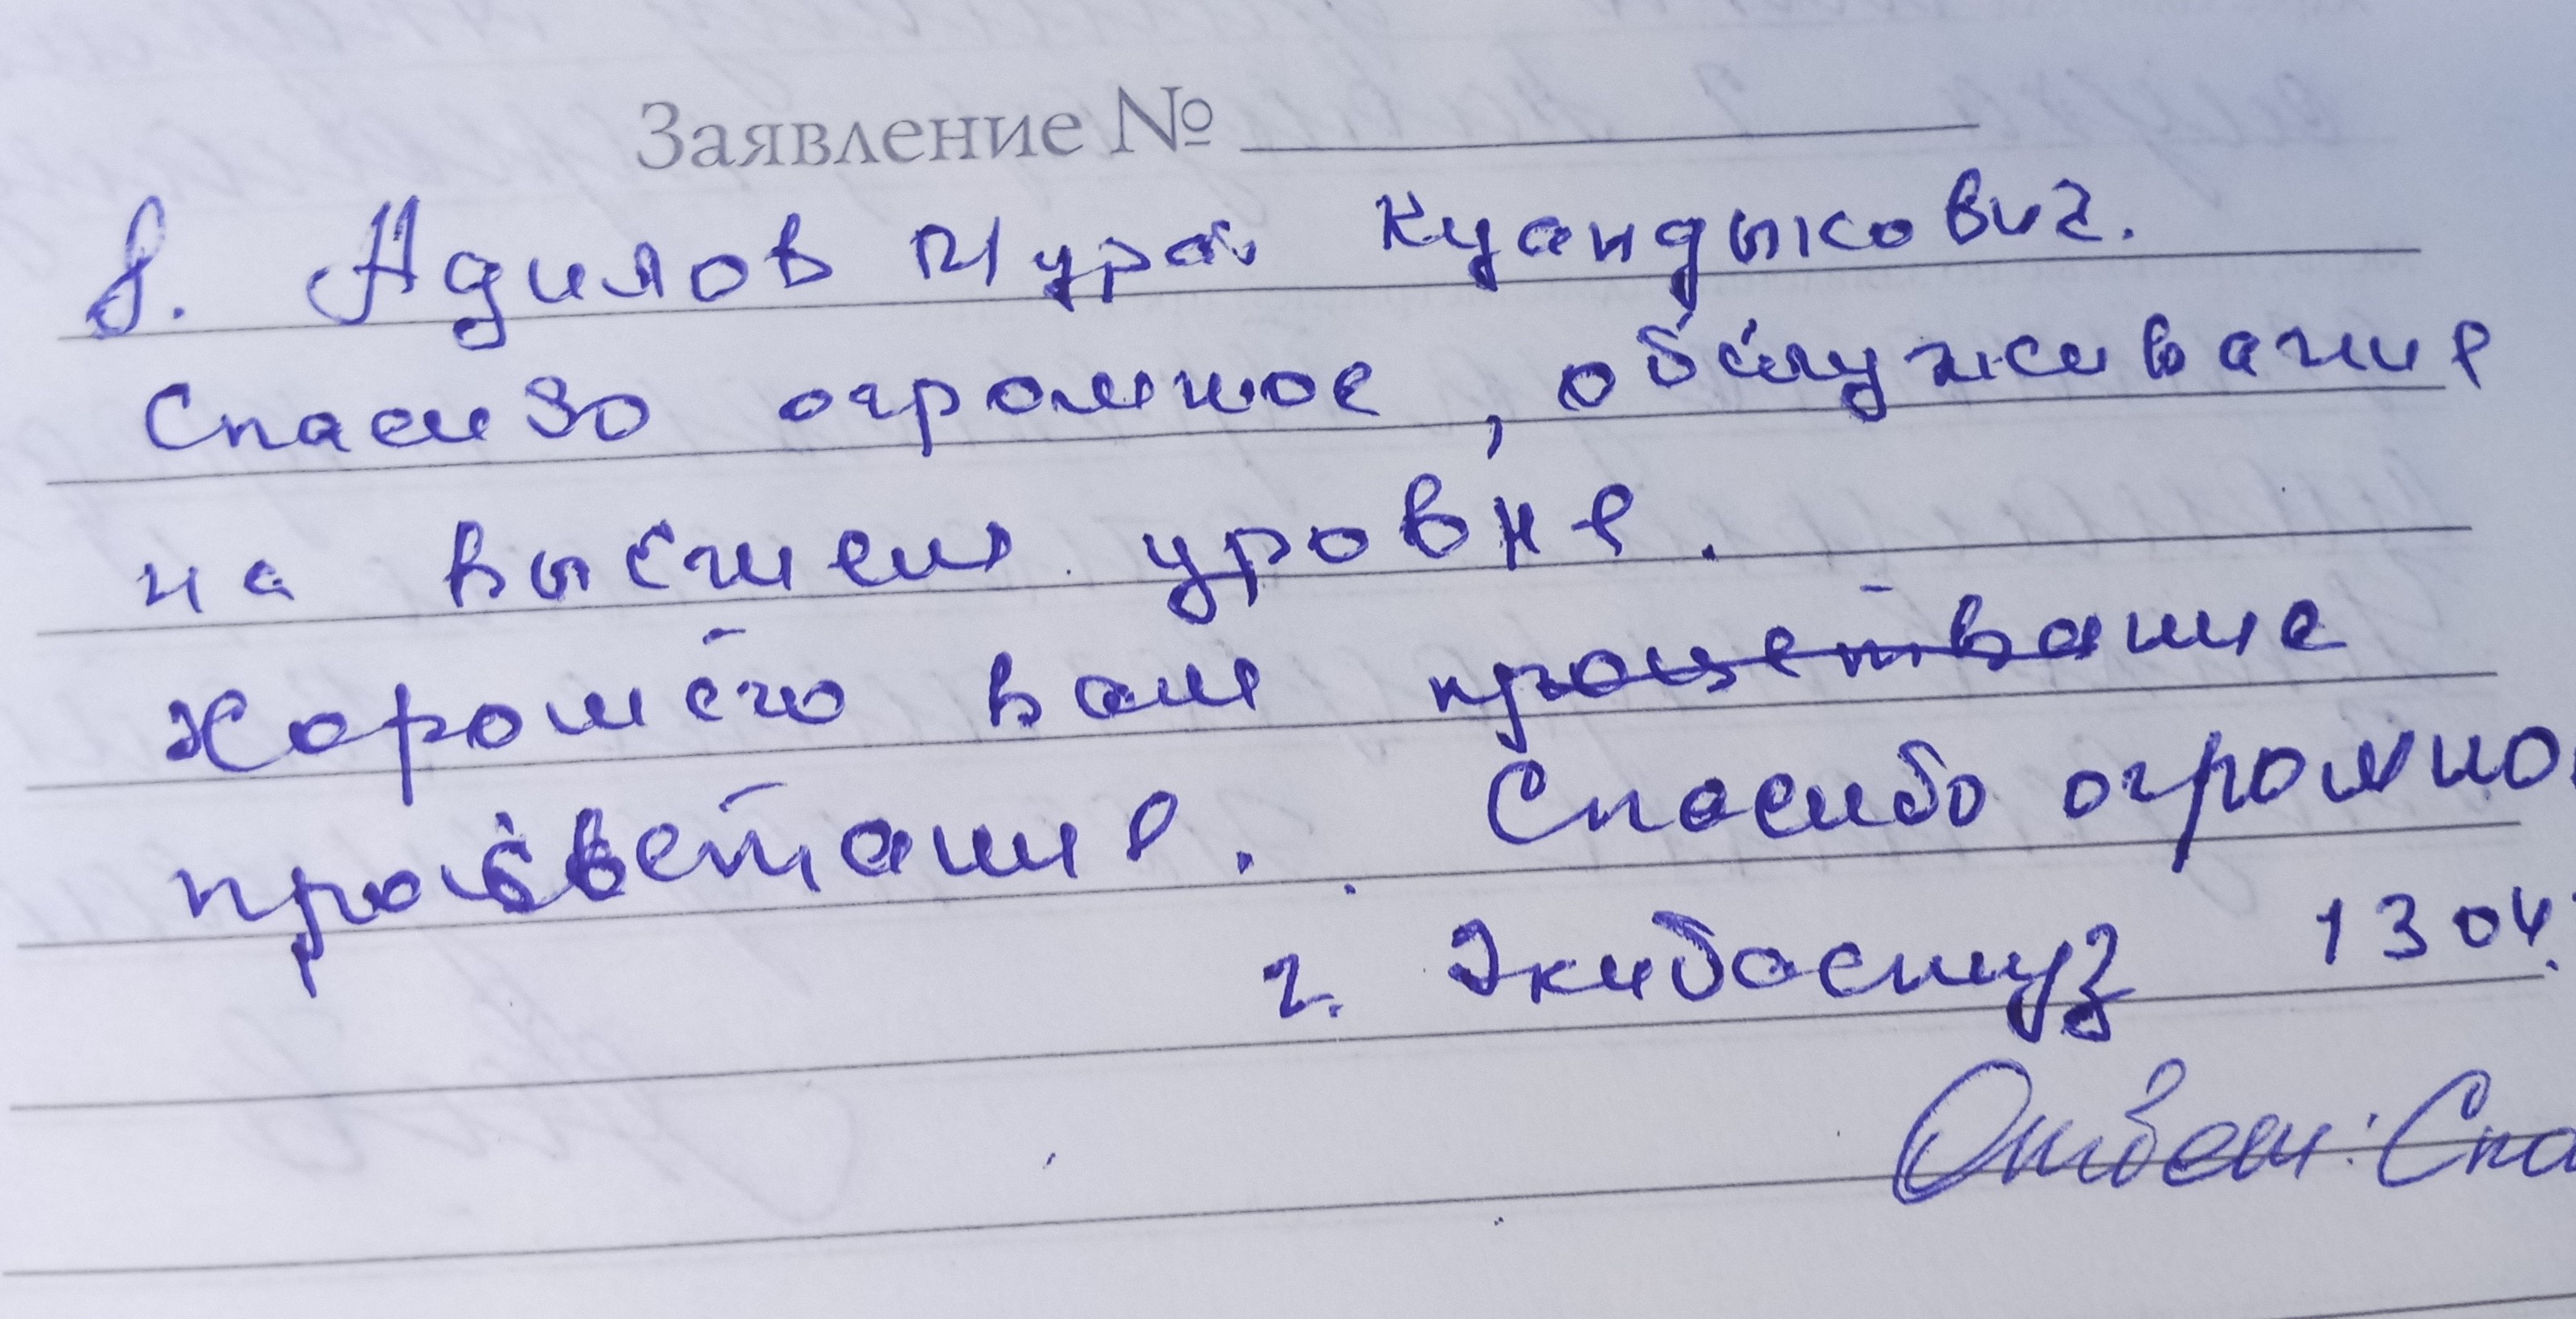 Заявление №
Я. Адилов Мурат Куандыкович.
Спасибо огромное, обслуживание
на высшем уровне.
Хорошего вам процетвание
процветание. Спасибо огромно
г. Экибастуз 13 04.
Ответ: Спа